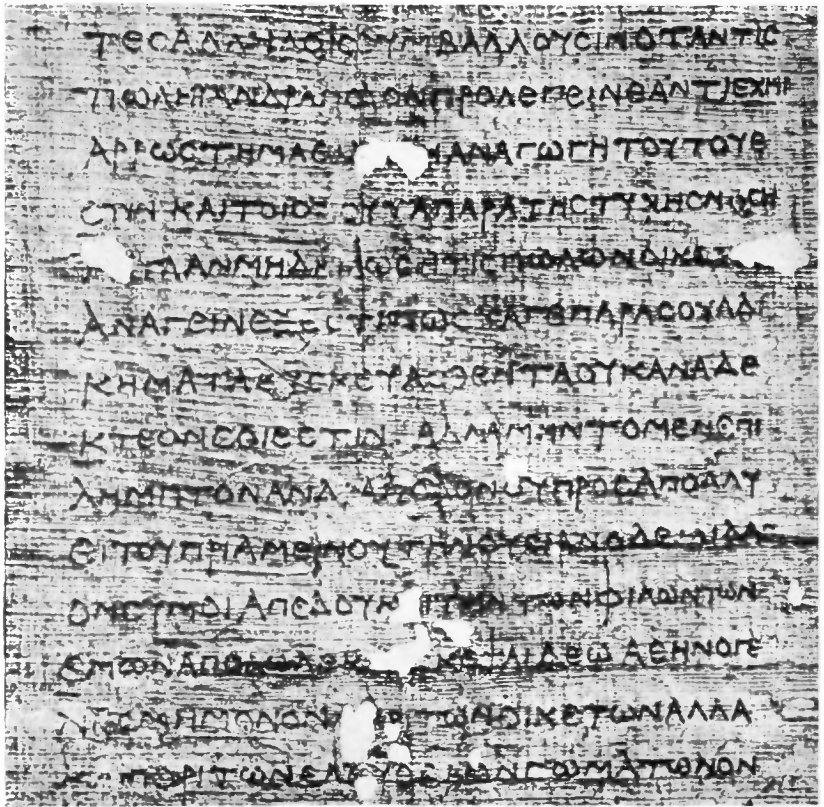 ΤΕϹΑΛΛΗΛΟΙϹϹΥΜΒΑΛΛΟΥϹΙΝΟΤΑΝΤΙϹ
ΠΩΛΗΙΑΝΔΡΑΠΟΔΟΝΠΡΟΛΕΓΕΙΝΕΑΝΤΙΕΧΗΙ
ΑΡΡΩϹΤΗΜΑΕΙ ΗΑΝΑΓΩΓΗΤΟΥΤΟΥΕ
ϹΤΙΝΚΑΙΤΟΙΟΠΟΥΤΑΠΑΡΑΤΗϹΤΥΧΗϹΝΟϹΗ
ΑΝΜΗΔΗΛΩϹΗΙΤΙϹΠΩΛΩΝΟΙΚΕΤ
ΑΝΑΓΕΙΝΕΞΕϹΤΙΠΩϹΤΑΓΕΠΑΡΑϹΟΥΑΔΙ
ΚΗΜΑΤΑϹΥϹΚΕΥΑϹΘΕΝΤΑΟΥΚΑΝΑΔΕ
ΚΤΕΟΝϹΟΙΕϹΤΙΝ ΑΛΛΑΜΗΝΤΟΜΕΝΕΠΙ
ΛΗΜΠΤΟΝΑΝΔΡΑΠΟΔΟΝΟΥΠΡΟϹΑΠΟΛΛΥ
ΕΙΤΟΥΠΡΙΑΜΕΝΟΥΤΗΝΟΥϹΙΑΝΟΔΕΜΙΔΑϹ
ΟΝϹΥΜΟΙΑΠΕΔΟΥΚ ΙΤΗΝΤΩΝΦΙΛΩΝΤΩΝ
ΕΜΩΝΑΠΟΛΩΛΕΚΕ ΚΕΨΑΙΔΕΩΑΘΗΝΟΓΕ
ΝΕϹΜΗΜΟΝΟΝ ΤΩΝΟΙΚΕΤΩΝΑΛΛΑ
Κ ΠΕΡΙΤΩΝΕΛΕΥΘΕΡΩΝϹΩΜΑΤΩΝΟΝ